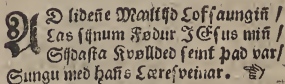 AD lideñe Mꜳltijd Lofsaungiñ /
Las sijnum Fødur JEsus miñ /
Sijdasta Kvøllded seint pad var /
Sungu med hañs Læresveinar.